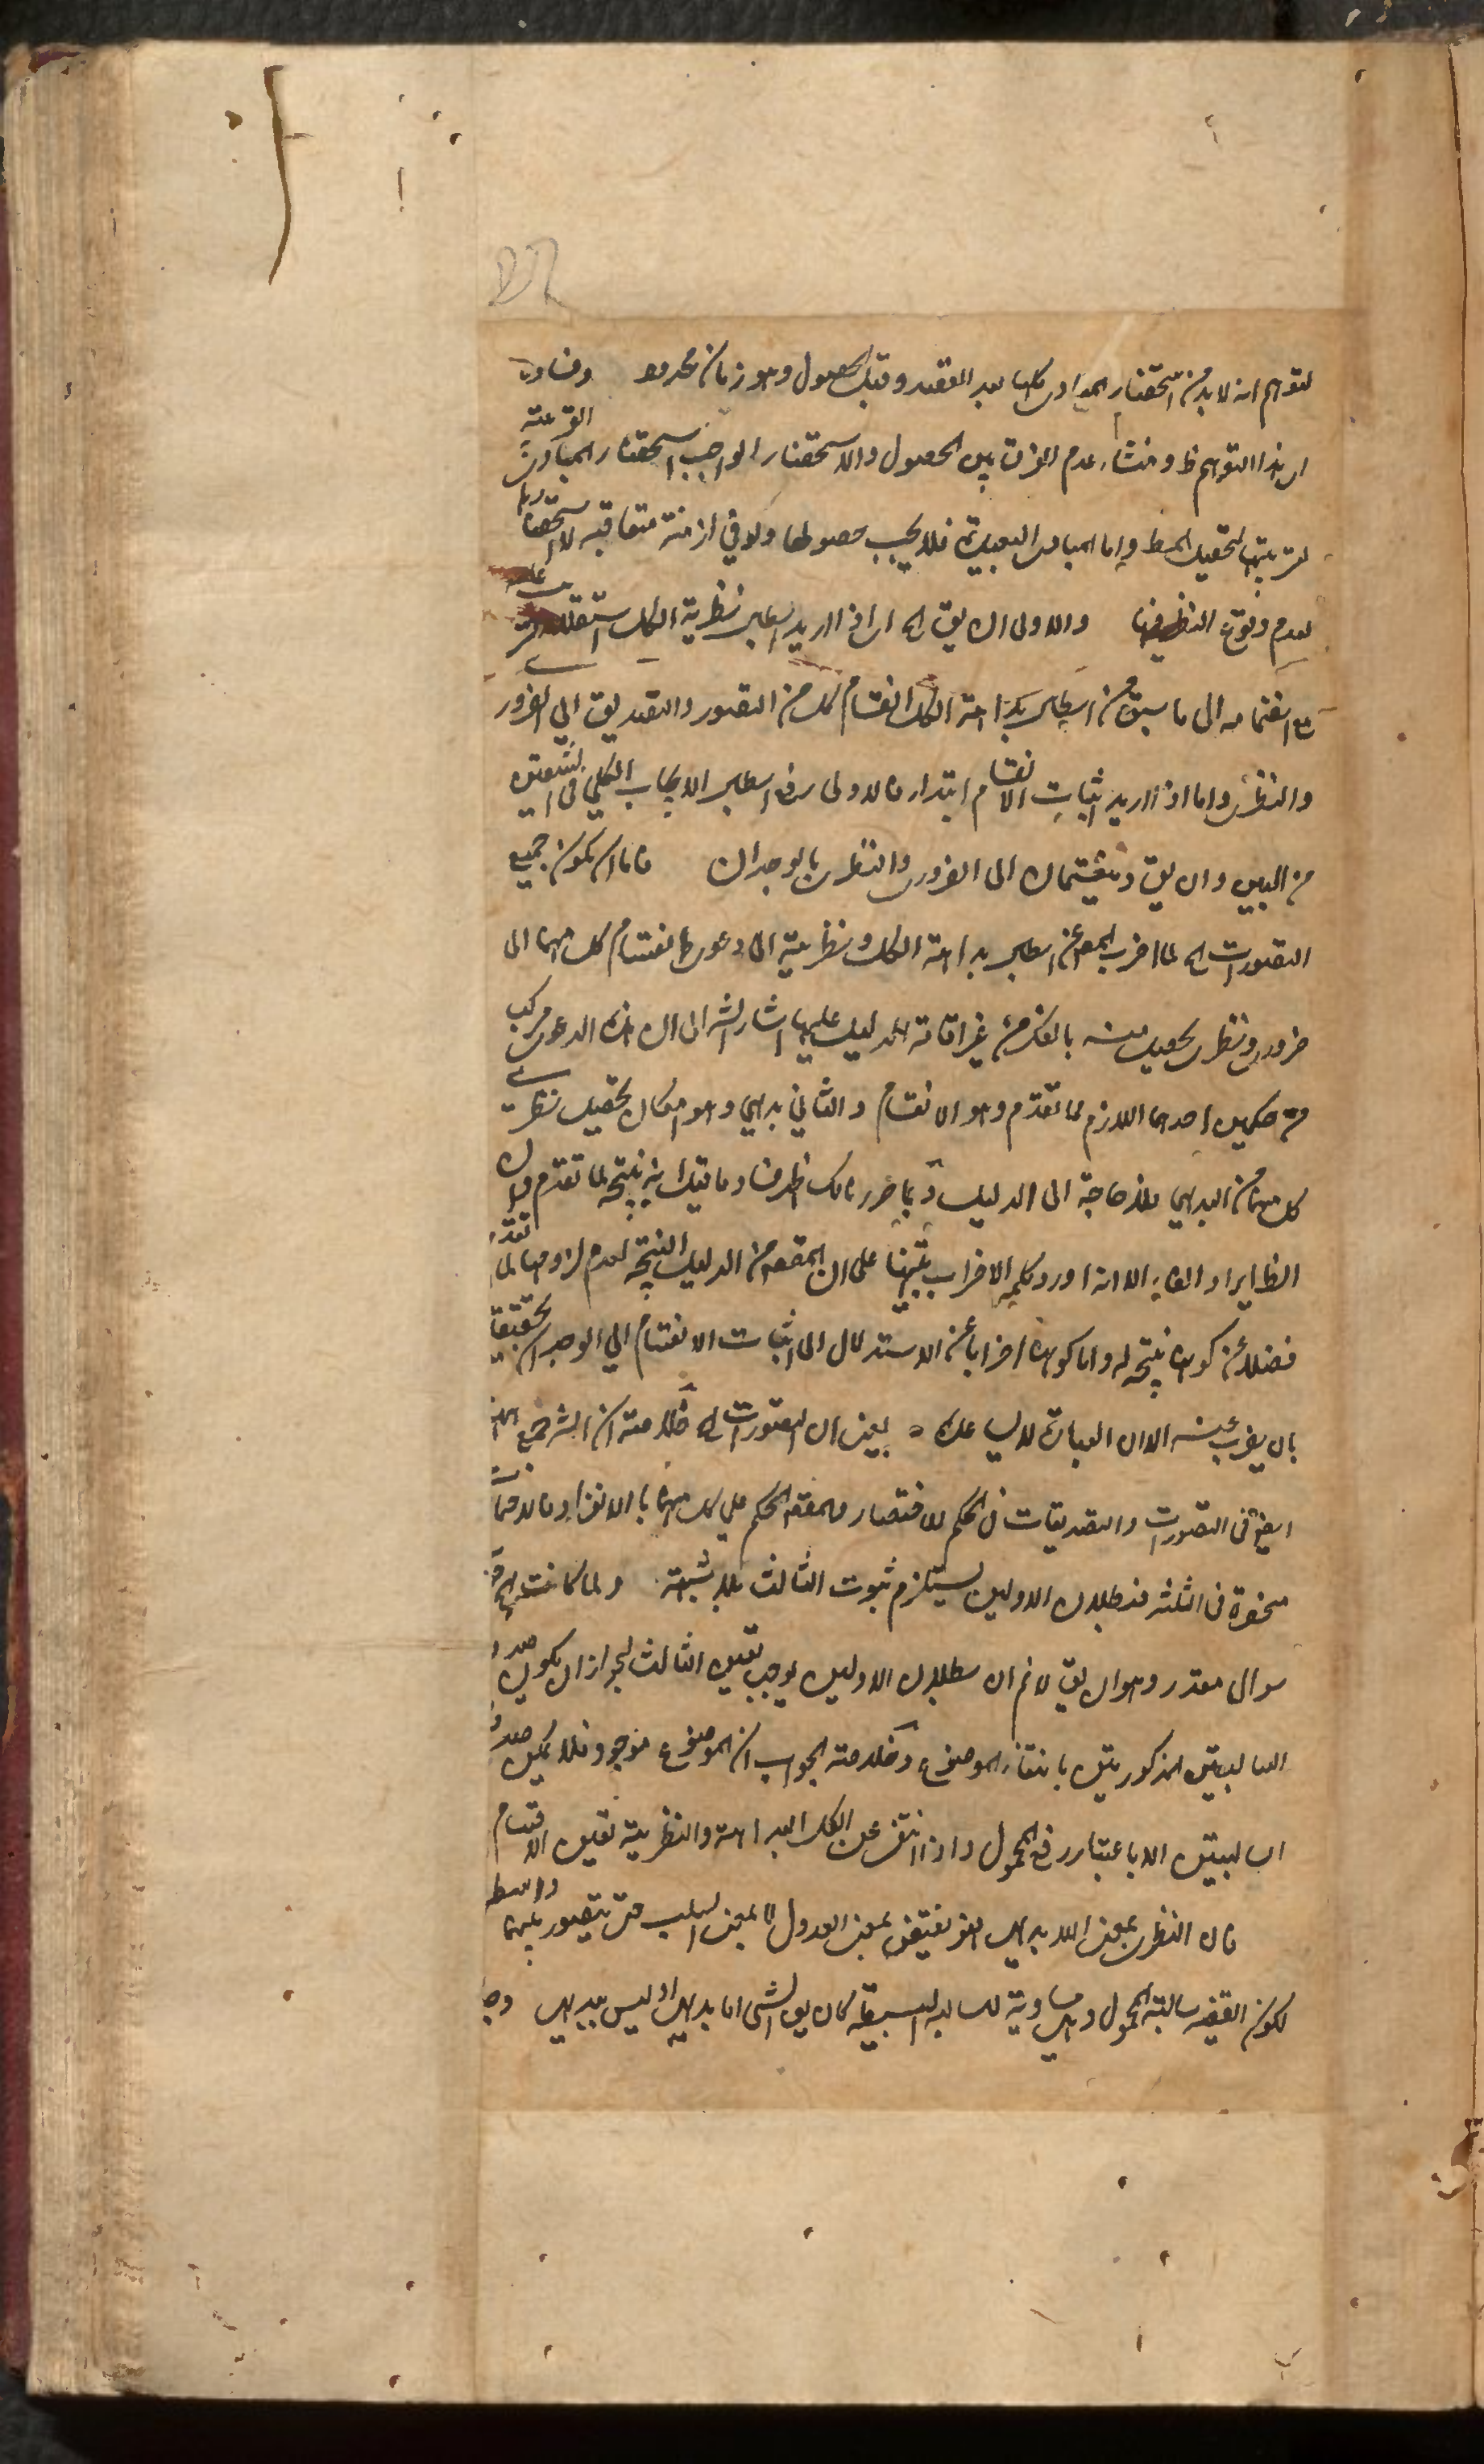 لتوهم انه لا بد من استحضار المبادى كلها بعد القصد وقبل الحصول وهو زمان محدود وفساد
ان هذا التوهم ظ ومنشاء عدم الفرق بين الحصول والاستحضار الواجب استحضار المبادى القريبة
لترتيبها لتحصيل المط واما المبادى البعيدة فلا يجب حصولها ولا فى ازمنة متعاقبة لا استحضارها
لعدم وقوع النظر فيها والاولى ان يق الخ ان اذا اريد ابطال نظرية الكل استقلالا
مع انضمامه الى ما سبق من ابطال بداهة الكل انقسام كل من التصور والتصديق الى الضرور
والنظرى واما اذا اريد اثبات الانقسام ابتداء فالاولى رفع ابطال الايجاب الكلى فى الشقين
من البين وان يق وينقسمان الى الضرورى والنظرى بالوجدان فاما ان يكون جميع
التصورات الخ لما اضرب المص عن ابطال بداهة الكل ونظرية الى دعوى انقسام كل منهما الى
ضرورى ونظرى يحصل منه بالفكر من غير اقامة الدليل عليها اشار الش الى ان هذه الدعوى مركب
من حكمين احدهما اللازم لما تقدم وهو الانقسام والثانى بديهى وهو امكان تحصيل نظرى
كل منهما من البديهى فلا حاجة الى الدليل وبما حررنا لك ظهر فساد ما قيل انه نتيجة لما تقدم وان
الظ ايراد الفاء الا انه اورد كلمة الاضراب تنبيها على ان المقصود من الدليل النتيجة لعدم لزومها لما تقدم
فضلا عن كونها نتيجة له واما كونه اضرابا عن الاستدلال الى اثبات الانقسام الى الوجدان تحقيقا
بان يضرب عنه الا ان العبارة لا يساعده يعنى ان التصورات الخ خلاصته ان الش جمع
ايضا فى التصورات والتصديقات فى الحكم للاختصار والمقصود الحكم على كل منهما بالانفراد فالاحتمالات
منحصرة فى الثلثة فبطلان الاولين يستلزم ثبوت الثالث بلا شبهة ولما كانت
سوال مقدر وهو ان يق لا نم ان بطلان الاولين يوجب تعين الثالث لجواز ان يكون صدق
السالبتين المذكورتين بانتفاء الموضوع وخلاصة الجواب ان الموضوع موجود فلا يمكن صدق
السالبتين الا باعتبار رفع المحمول واذا انتفى عن الكل البداهة والنظرية تعين الانقسام
فان النظرى بمعنى اللابديهى فهو نقيضى بمعنى العدول لا بمعنى السلب حتى يتصور بينهما واسطة
لكون القضية سالبة المحمول وهى مساوية للسالبة البسيطة كان يق الشى اما بديهى او ليس ببديهى